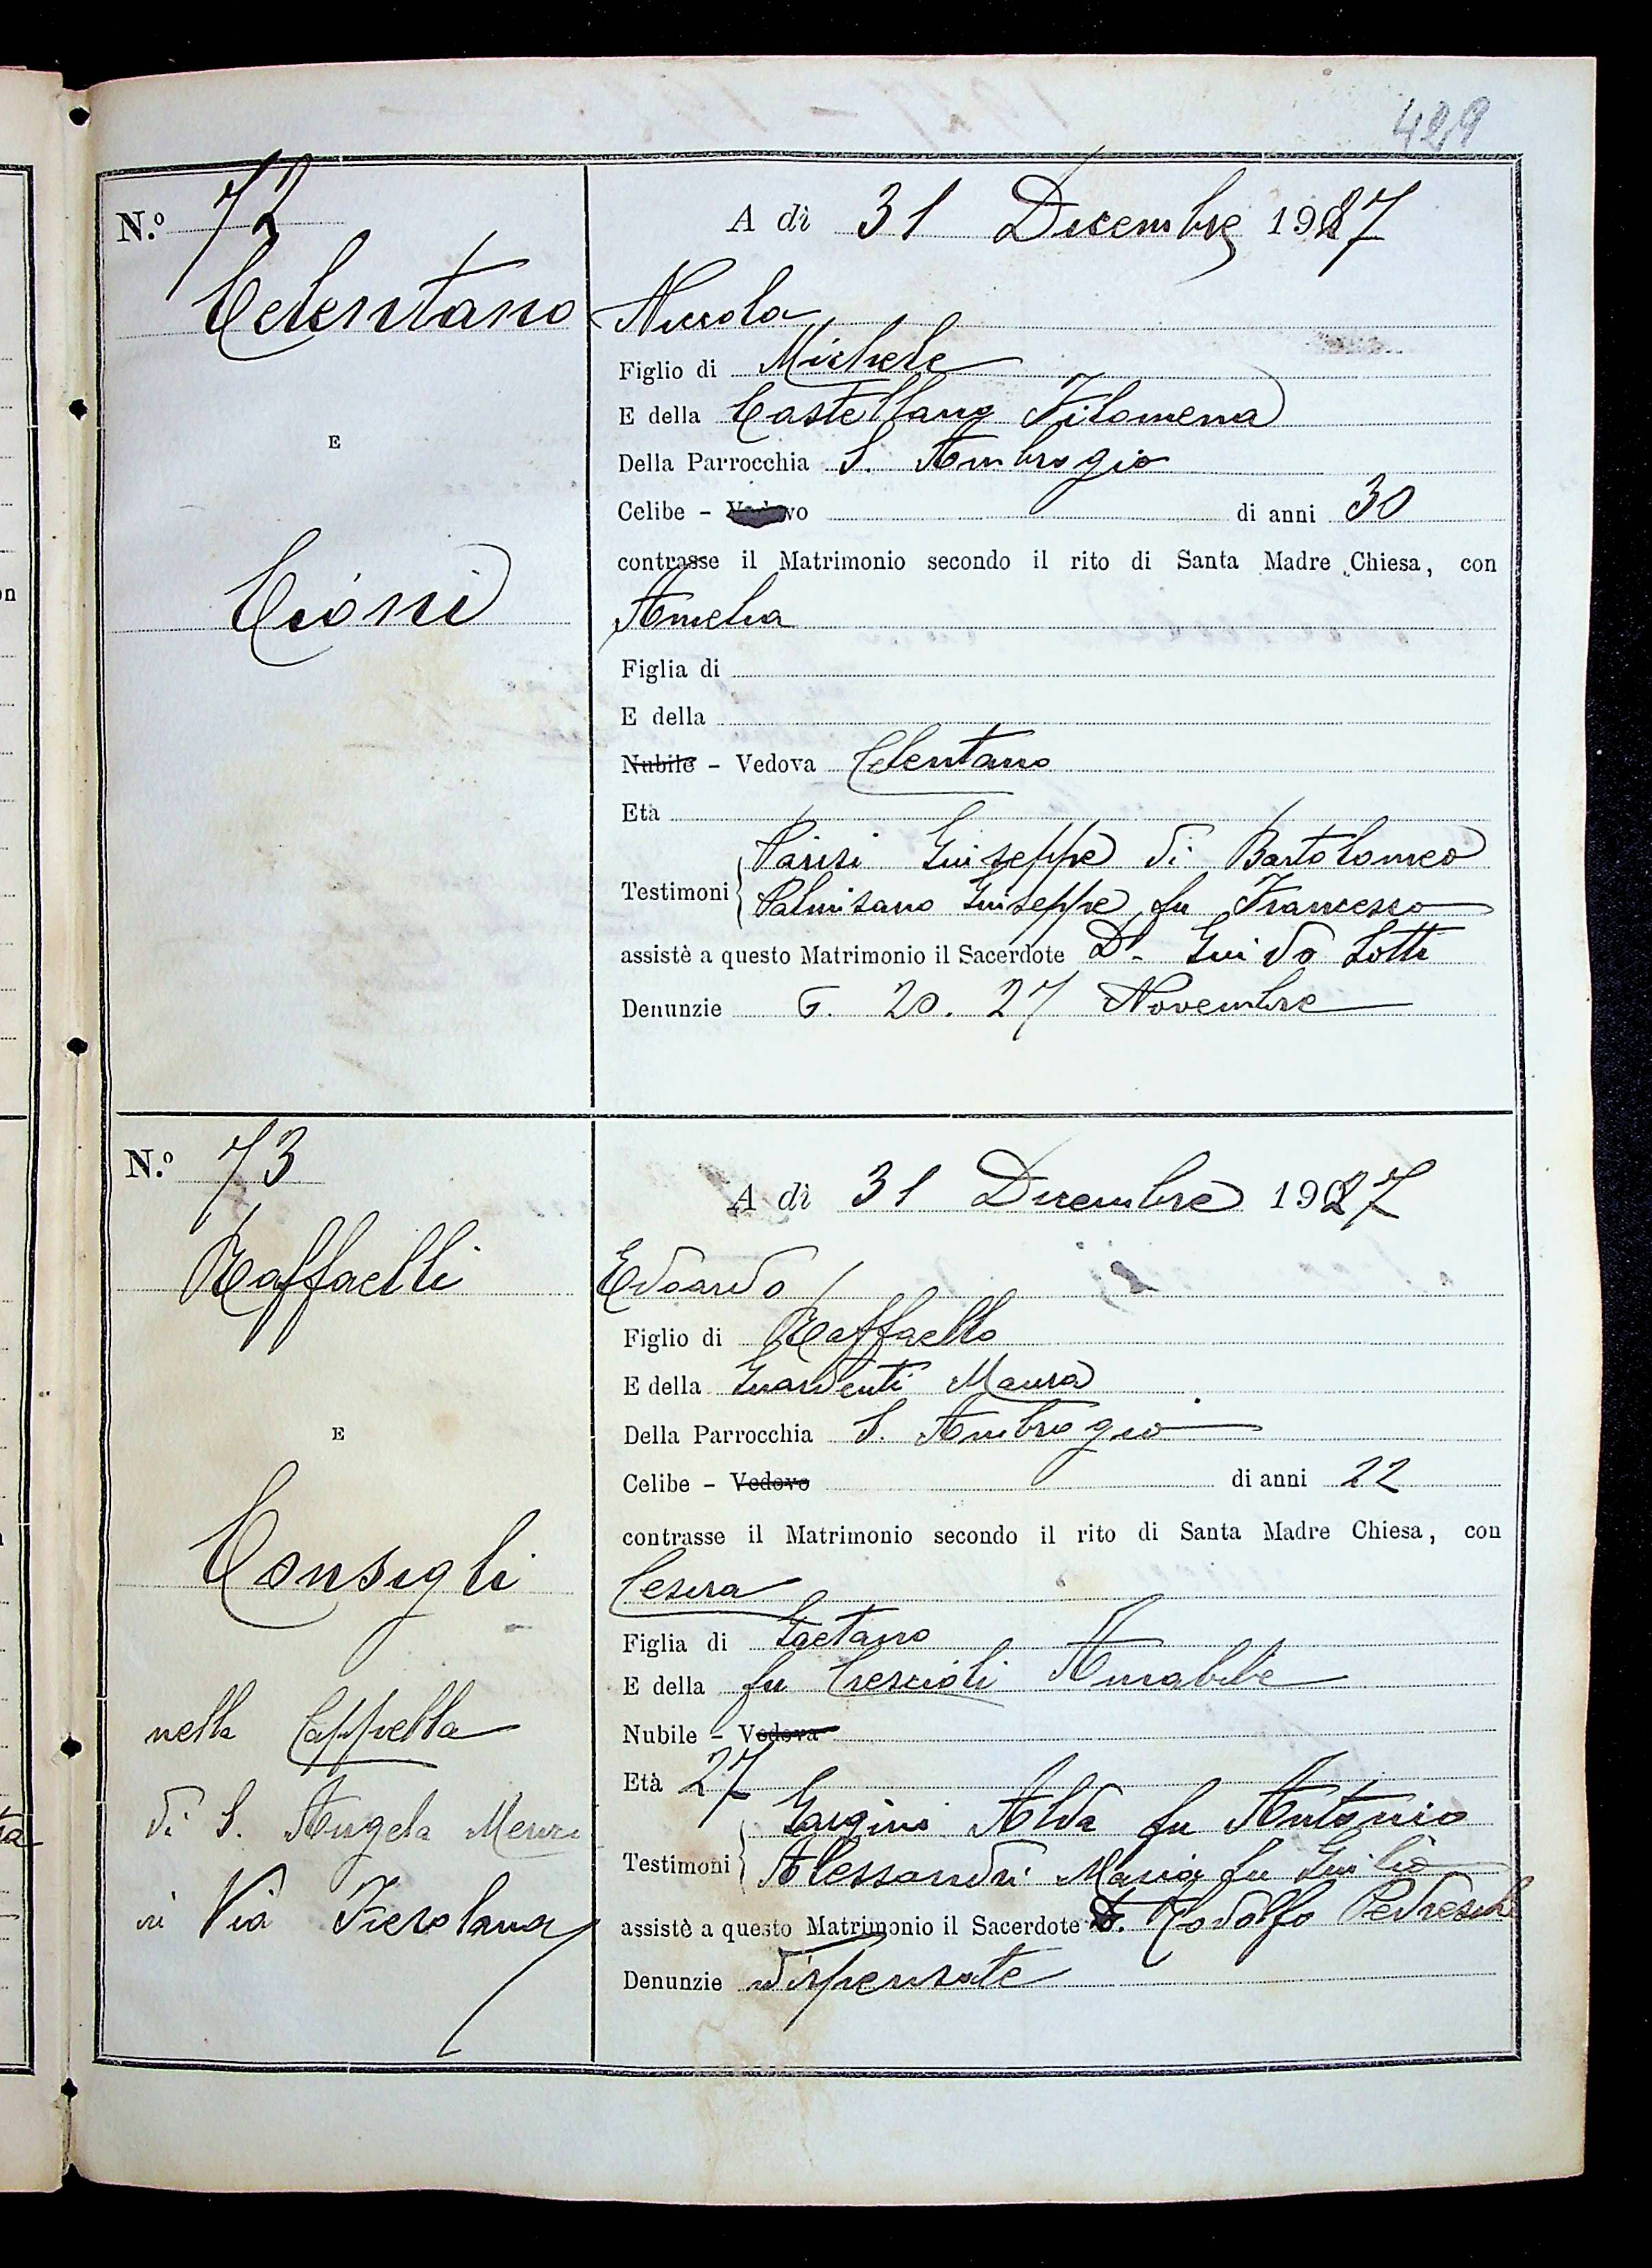 429
N.º 72
A dì 31 Decembre 1927
Celentano
Nicola
Figlio di Michele
E della Castellano Filomena
E
Della Parrocchia S. Ambrogio
Celibe - Vedovo di anni 30
contrasse il Matrimonio secondo il rito di Santa Madre Chiesa, con
Cioni
Amelia
Figlia di
E della
Nubile - Vedova Celentano
Età
Parisi Giuseppe di Bartolomeo
Testimoni
Palmisano Giuseppe fu Francesco
assistè a questo Matrimonio il Sacerdote Dr. Guido Lotti
Denunzie 6. 20. 27 Novembre
N.º 73
A dì 31 Decembre 1927
Raffaelli
Edoardo
Figlio di Raffaello
E della Guarducci Maura
E
Della Parrocchia S. Ambrogio
Celibe - Vedovo di anni 22
contrasse il Matrimonio secondo il rito di Santa Madre Chiesa, con
Consigli
Cesira
Figlia di Gaetano
E della fu Crescioli Amabile
nella Cappella
Nubile - Vedova
Età 27
di S. Angela Merici
Gargini Alda fu Antonio
Testimoni
Alessandri Maria fu Giulio
in Via Fiesolana
assistè a questo Matrimonio il Sacerdote D. Rodolfo Pedreschi
Denunzie dispensate